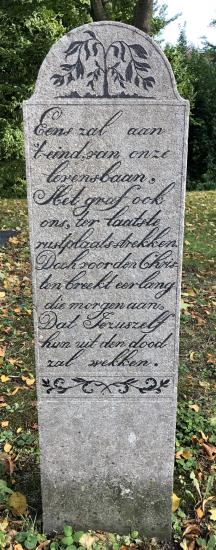 Eens zal aan
't eind van onze
levensbaan,
Het graf ook
ons, ter laatste
rustplaats strekken
Doch voor den Chris
ten breekt eerlang
die morgen aan,
Dat Jezus zelf
hem uit den dood
zal wekken.